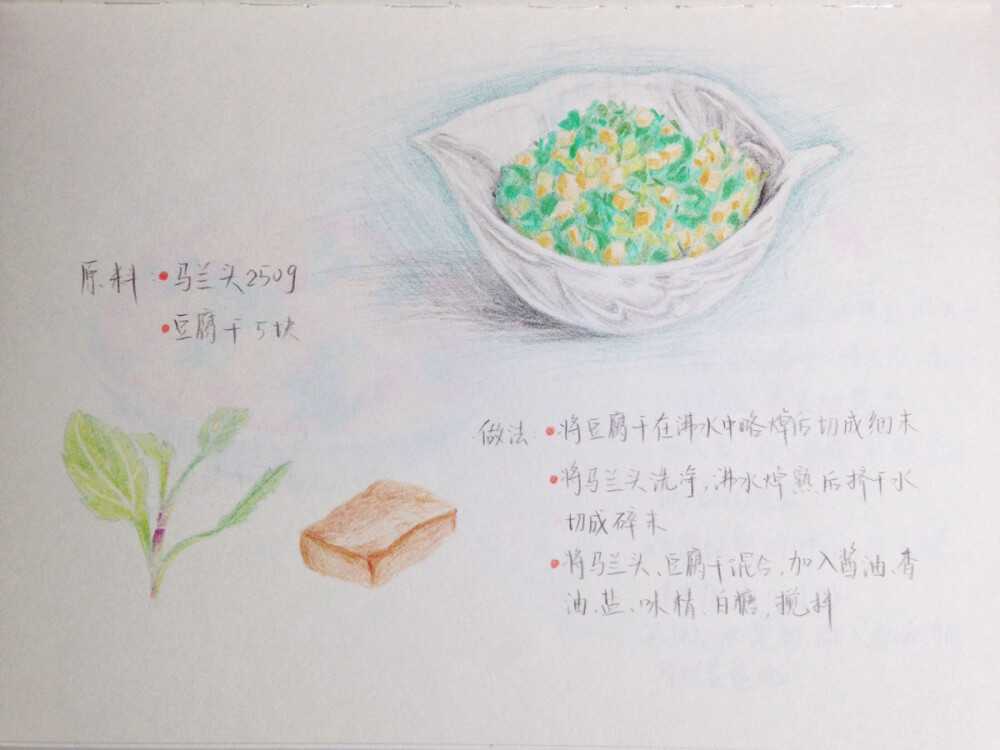 原料 •马兰头250g
•豆腐干5块
做法: •将豆腐干在沸水中略焯后切成细末
•将马兰头洗净,沸水焯熟后挤干水
切成碎末
•将马兰头、豆腐干混合,加入酱油、香
油、盐、味精、白糖,搅拌